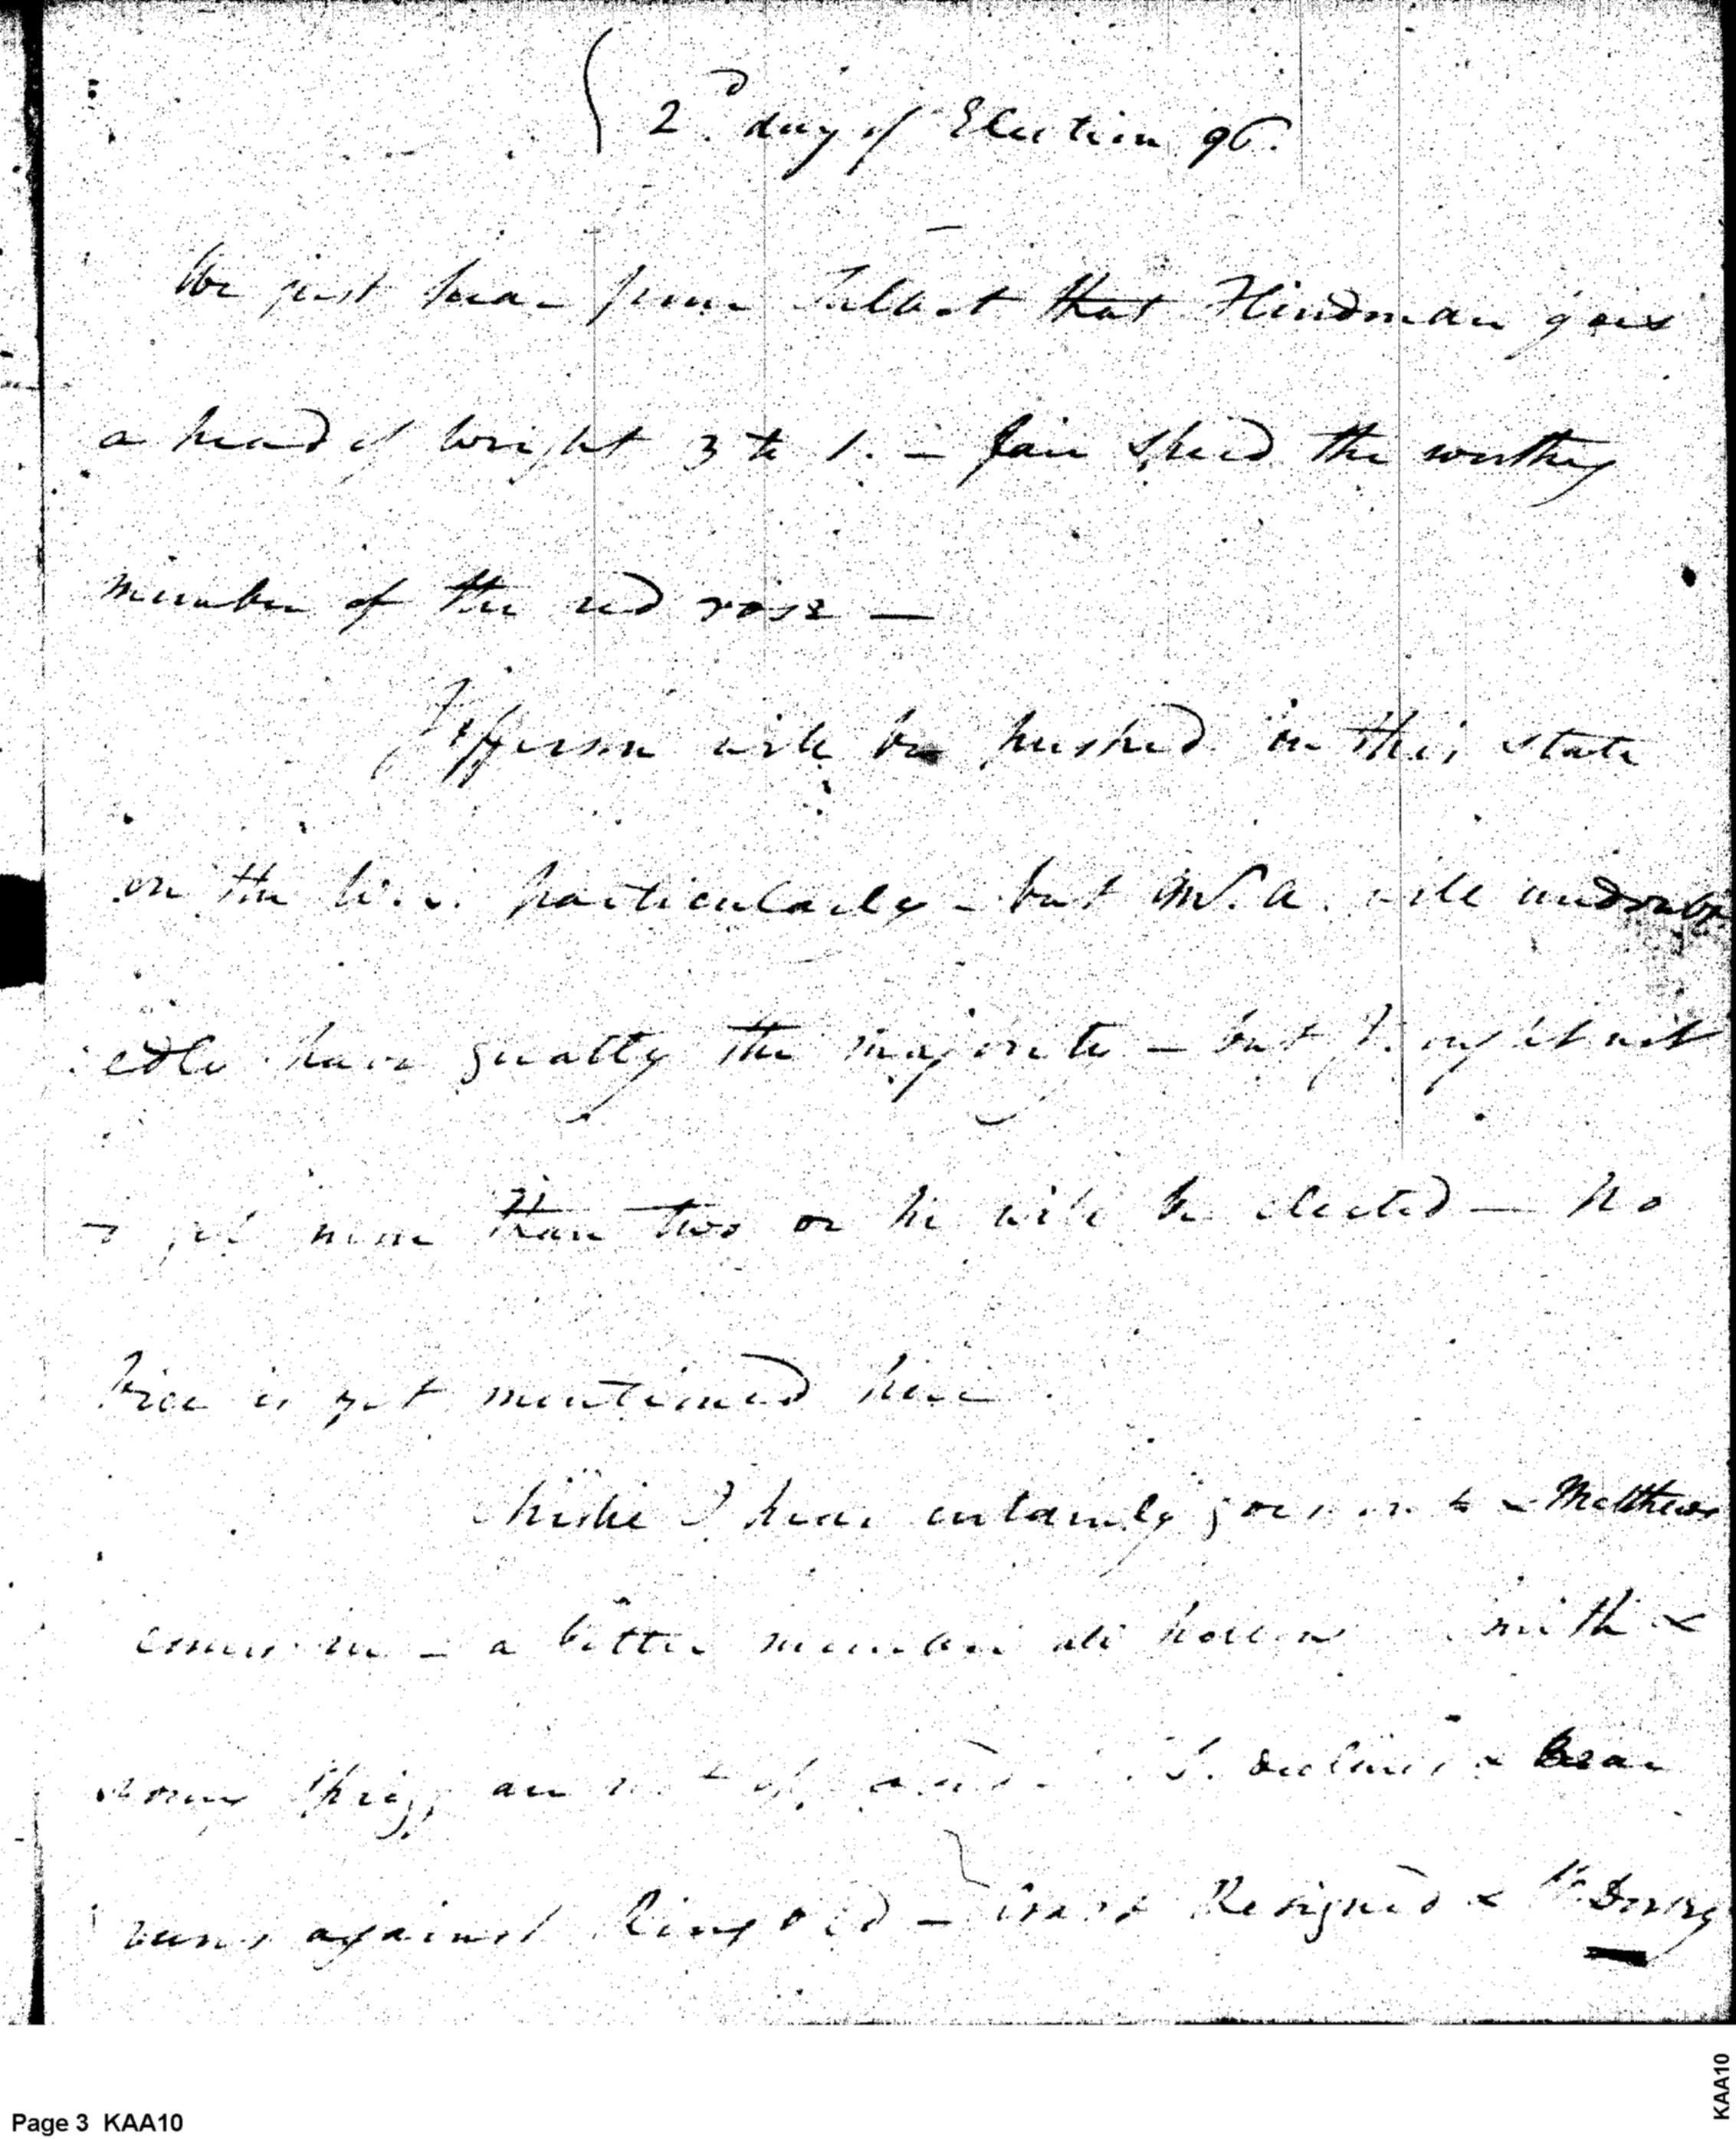 2.d day of Election 96.
We just hear from Talbot that Hindman goes
a head of Wright 3 to 1. — fair speed the worthy
member of the red rose —
Jefferson will be pushed in this state
on the W. S. particularly — but Mr. A. will undoubt
edly have greatly the majority — but J. ought not
to get more than two or he will be elected — No
Vice is yet mentioned here.
I hear certainly goes in to & Matthews
comes in — a better member all hollow Smith &
young Sprigg are not opposed S. declines & Dean
runs against Ringold — Craik Resigned & W. Dorsey
Page 3 KAA10
KAA10